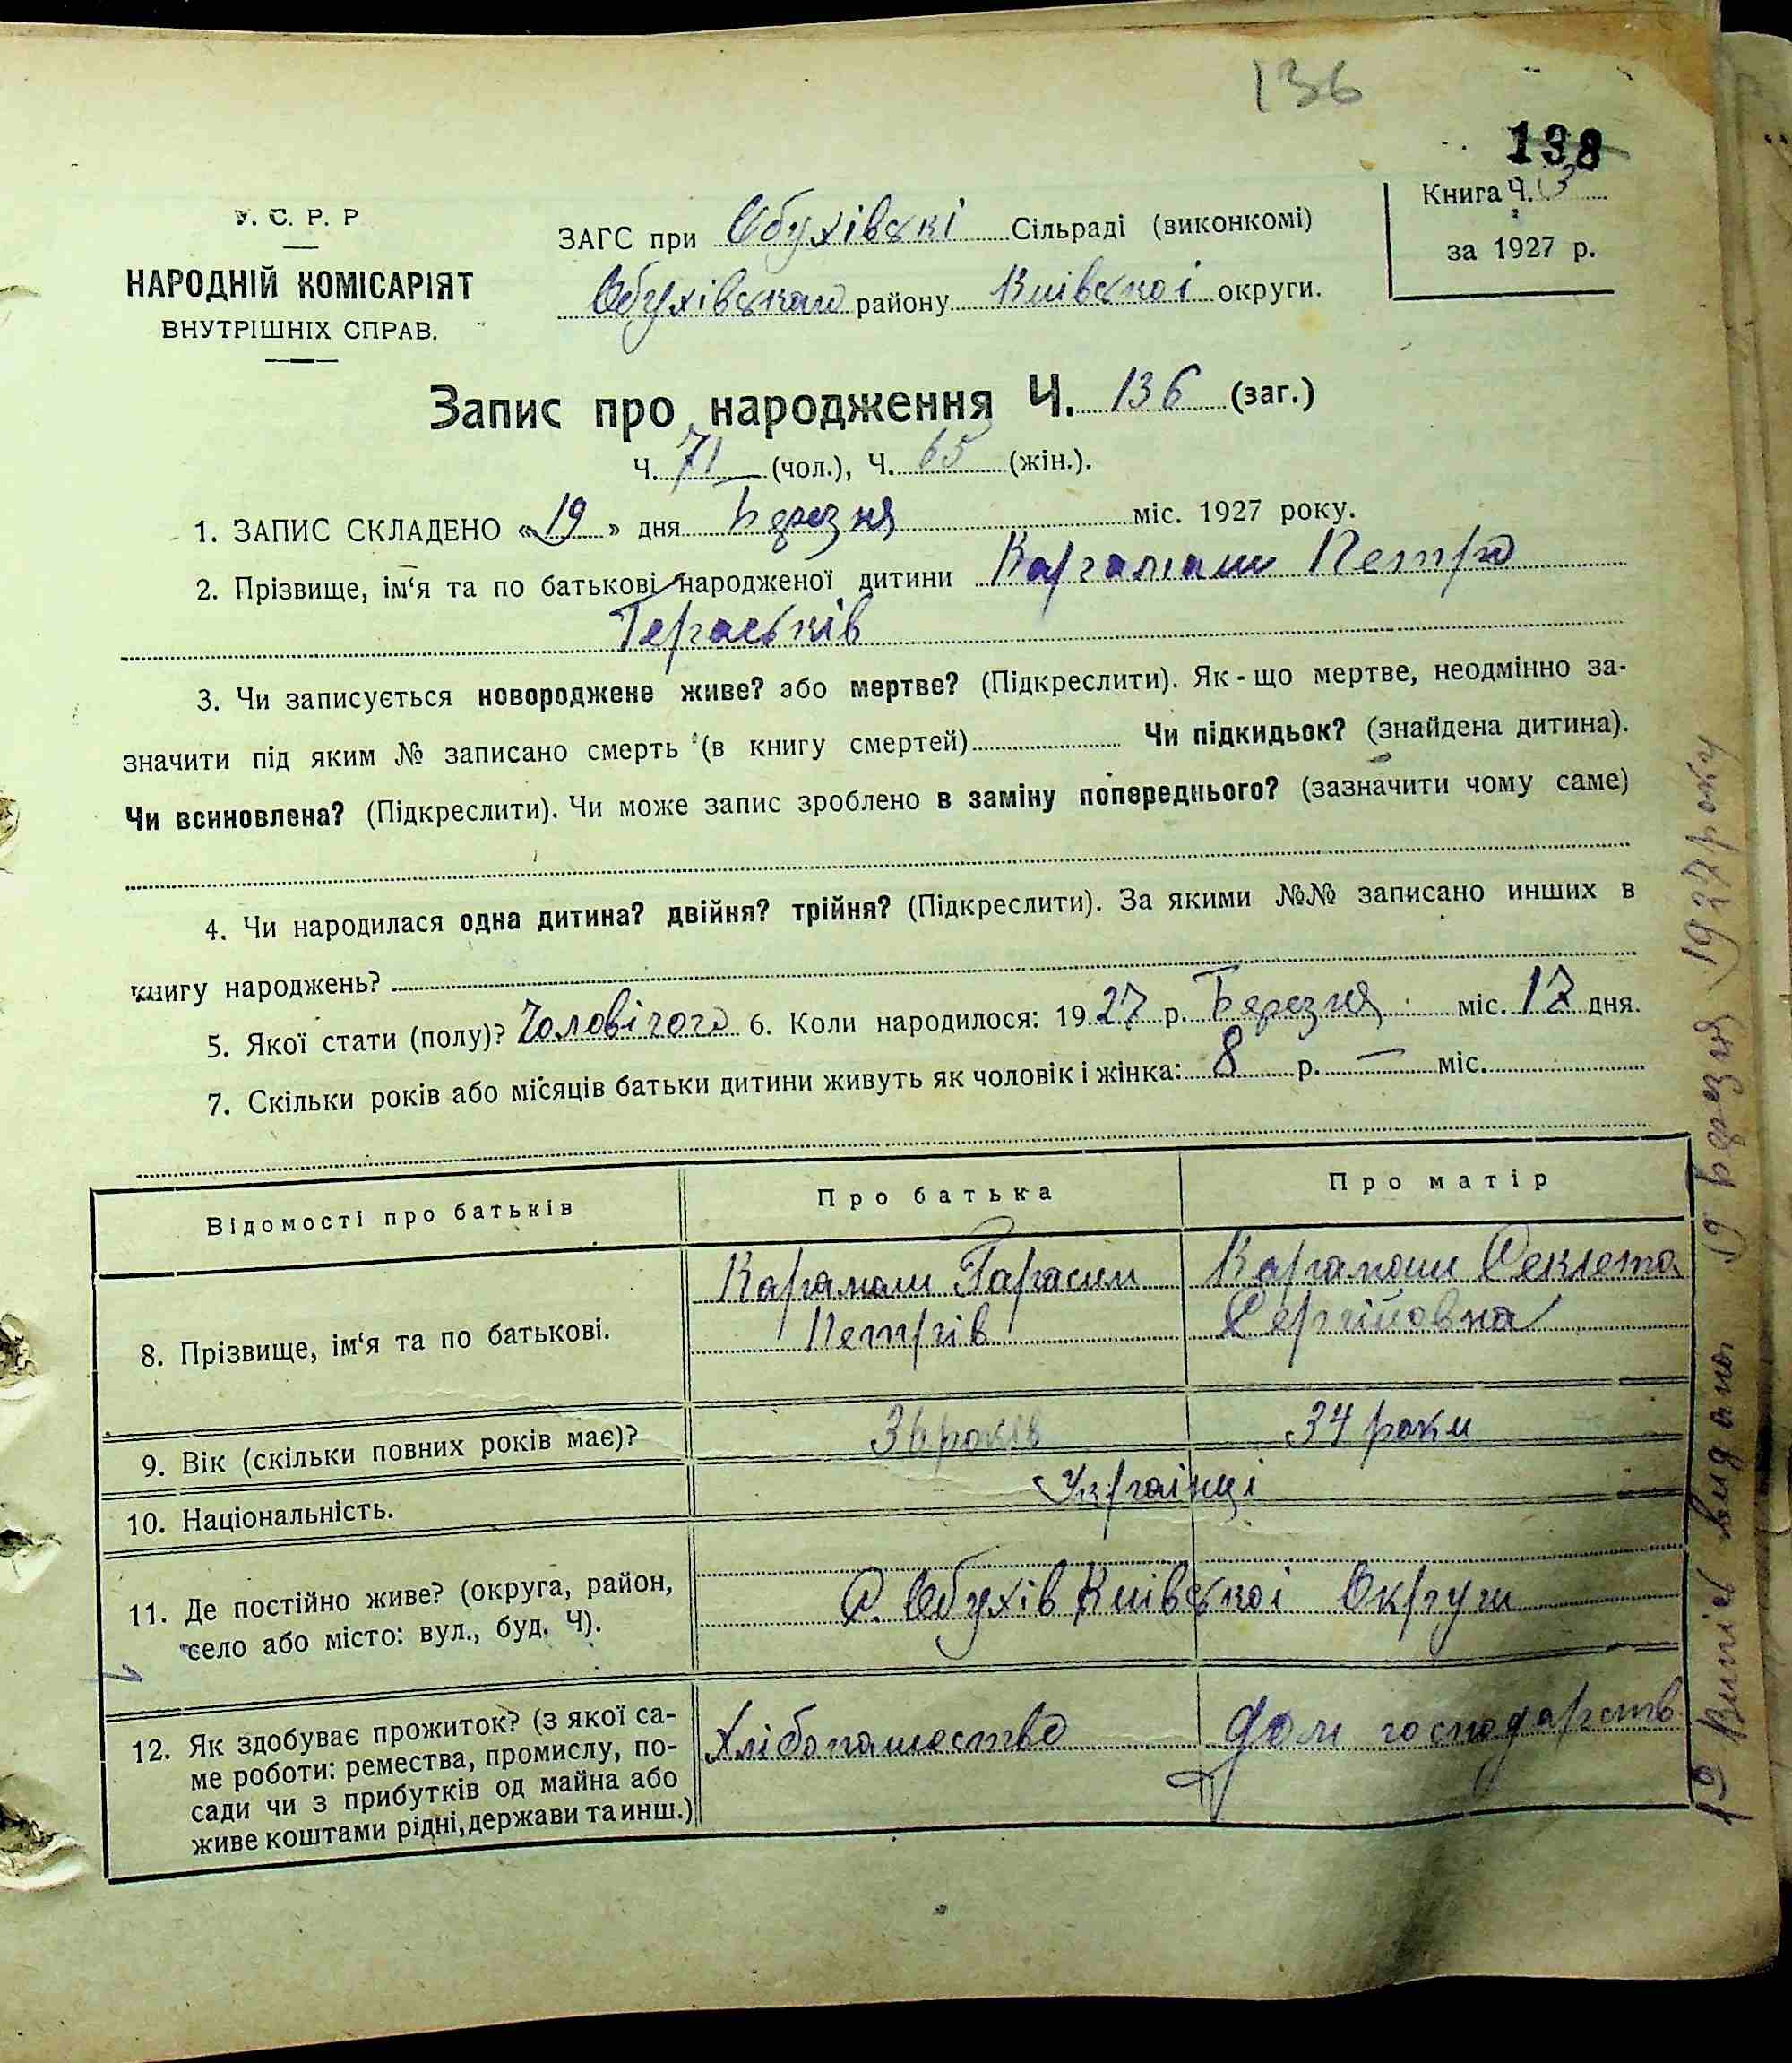 136
138
У. С. Р. Р
НАРОДНІЙ КОМІСАРІЯТ
ВНУТРІШНІХ СПРАВ.
ЗАГС при Обухівскі Сільраді (виконкомі)
Обухівского району Київскоі округи.
Книга Ч. 3
за 1927 р.
Запис про народження Ч. 136 (заг.)
Ч. 71 (чол.), Ч. 65 (жін.).
1. ЗАПИС СКЛАДЕНО «19» дня Березня міс. 1927 року.
2. Прізвище, ім‘я та по батькові народженої дитини Карамаш Петро
Гераськів
3. Чи записується новороджене живе? або мертве? (Підкреслити). Як-що мертве, неодмінно за-
значити під яким № записано смерть (в книгу смертей) Чи підкидьок? (знайдена дитина).
Чи всиновлена? (Підкреслити). Чи може запис зроблено в заміну попереднього? (зазначити чому саме)
4. Чи народилася одна дитина? двійня? трійня? (Підкреслити). За якими №№ записано инших в
книгу народжень?
5. Якої стати (полу)? Чоловічого 6. Коли народилося: 1927 р. Березня міс. 17 дня.
7. Скільки років або місяців батьки дитини живуть як чоловік і жінка: 8 р. — міс.
Відомості про батьків
Про батька
Про матір
8. Прізвище, ім‘я та по батькові.
Карамаш Гарасим
Петрів
Карамаш Феклета
Сергійовна
9. Вік (скільки повних років має)?
36 років
34 роки
10. Національність.
Українці
11. Де постійно живе? (округа, район,
село або місто: вул., буд. Ч).
С. Обухів Київскоі Округи
12. Як здобуває прожиток? (з якої са-
ме роботи: ремества, промислу, по-
сади чи з прибутків од майна або
живе коштами рідні, держави та инш.)
Хлібопашество
Дом господарств
Випіс видано 19 Березня 1927 року